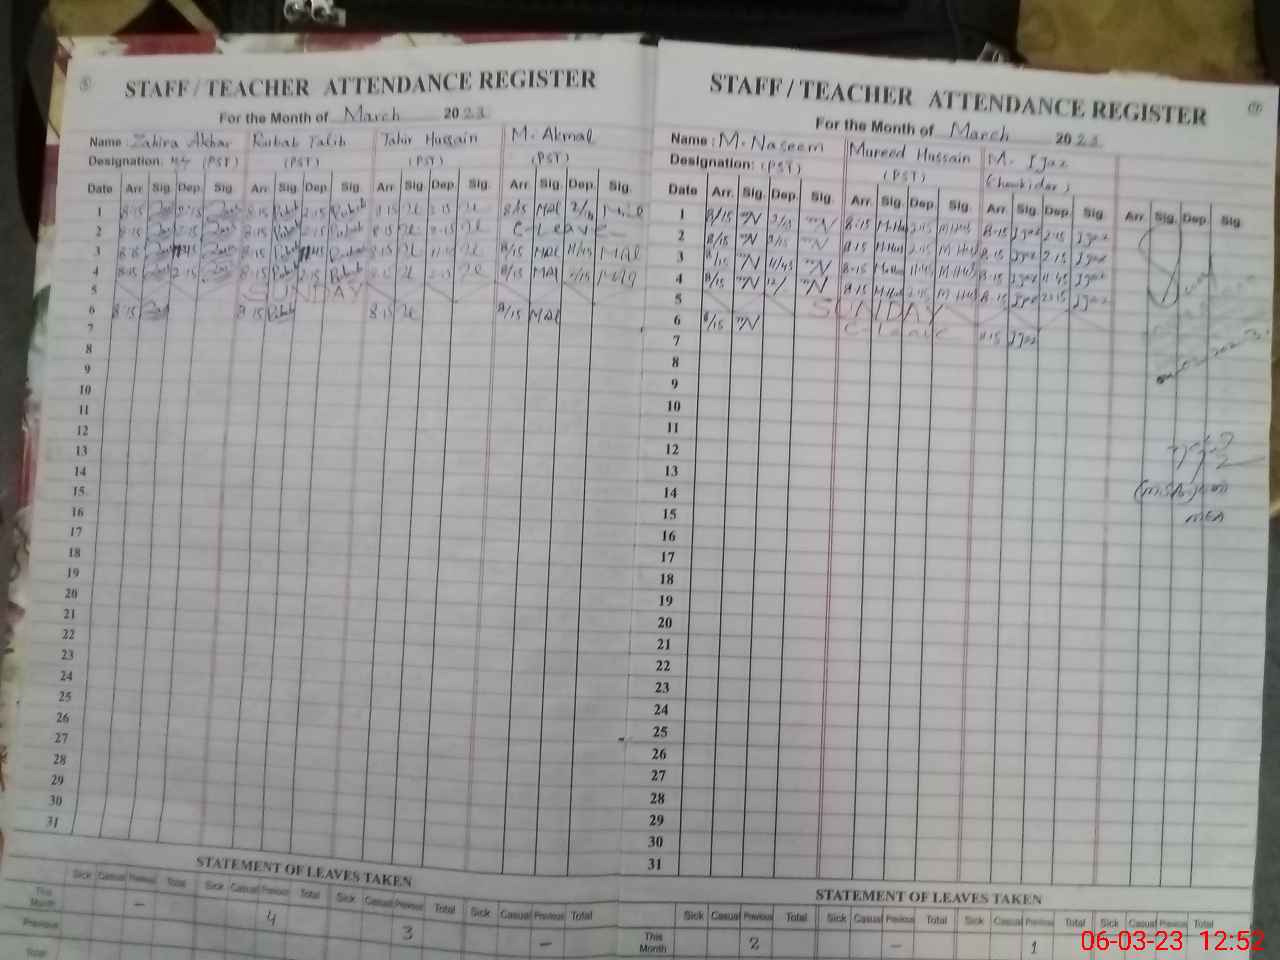 5
STAFF / TEACHER ATTENDANCE REGISTER
For the Month of March 2023
Name : Zahira Akbar Rubab Talib Tahir Hussain M. Akmal
Designation: (PST) (PST) (PST) (PST)
Date Arr. Sig. Dep. Sig. Arr. Sig. Dep. Sig. Arr. Sig. Dep. Sig. Arr. Sig. Dep. Sig.
1 8:15 2:15 8:15 Rubab 2:15 Rubab 8:15 2:15 8/15 MAL
2 8:15 2:15 8:15 Rubab 2:15 Rubab 8:15 2:15 C-Leave
3 8:15 11:45 8:15 Rubab 11:45 Rubab 8:15 11:45 8/15 MAL 11/45 MAL
4 8:15 2:15 8:15 Rubab 2:15 Rubab 8:15 2:15 8/15 MAL
5 SUNDAY
6 8:15 8:15 Rubab 8:15 8/15 MAL
7
8
9
10
11
12
13
14
15
16
17
18
19
20
21
22
23
24
25
26
27
28
29
30
31
STATEMENT OF LEAVES TAKEN
Sick Casual Previous Total Sick Casual Previous Total Sick Casual Previous Total Sick Casual Previous Total
This Month - 4 3 -
Previous
Total
STAFF / TEACHER ATTENDANCE REGISTER
For the Month of March 2023
Name : M. Naseem Mureed Hussain M. Ijaz
Designation: (PST) (PST) (Chowkidar)
Date Arr. Sig. Dep. Sig. Arr. Sig. Dep. Sig. Arr. Sig. Dep. Sig. Arr. Sig. Dep. Sig.
1 8/15 8:15 M.Hus 2:15 M.Hus 8:15 Ijaz 2:15 Ijaz
2 8/15 8:15 M.Hus 2:15 M.Hus 8:15 Ijaz 2:15 Ijaz
3 8/15 11/45 8:15 M.Hus 11:45 M.Hus 8:15 Ijaz 11:45 Ijaz
4 8/15 8:15 M.Hus 2:15 M.Hus 8:15 Ijaz 2:15 Ijaz
5 SUNDAY
6 8/15 C-Leave 8:15 Ijaz
7
8
9
10
11
12
13
14
15
16
17
18
19
20
21
22
23
24
25
26
27
28
29
30
31
MEA
STATEMENT OF LEAVES TAKEN
Sick Casual Previous Total Sick Casual Previous Total Sick Casual Previous Total Sick Casual Previous Total
This Month 2 - 1
06-03-23 12:52